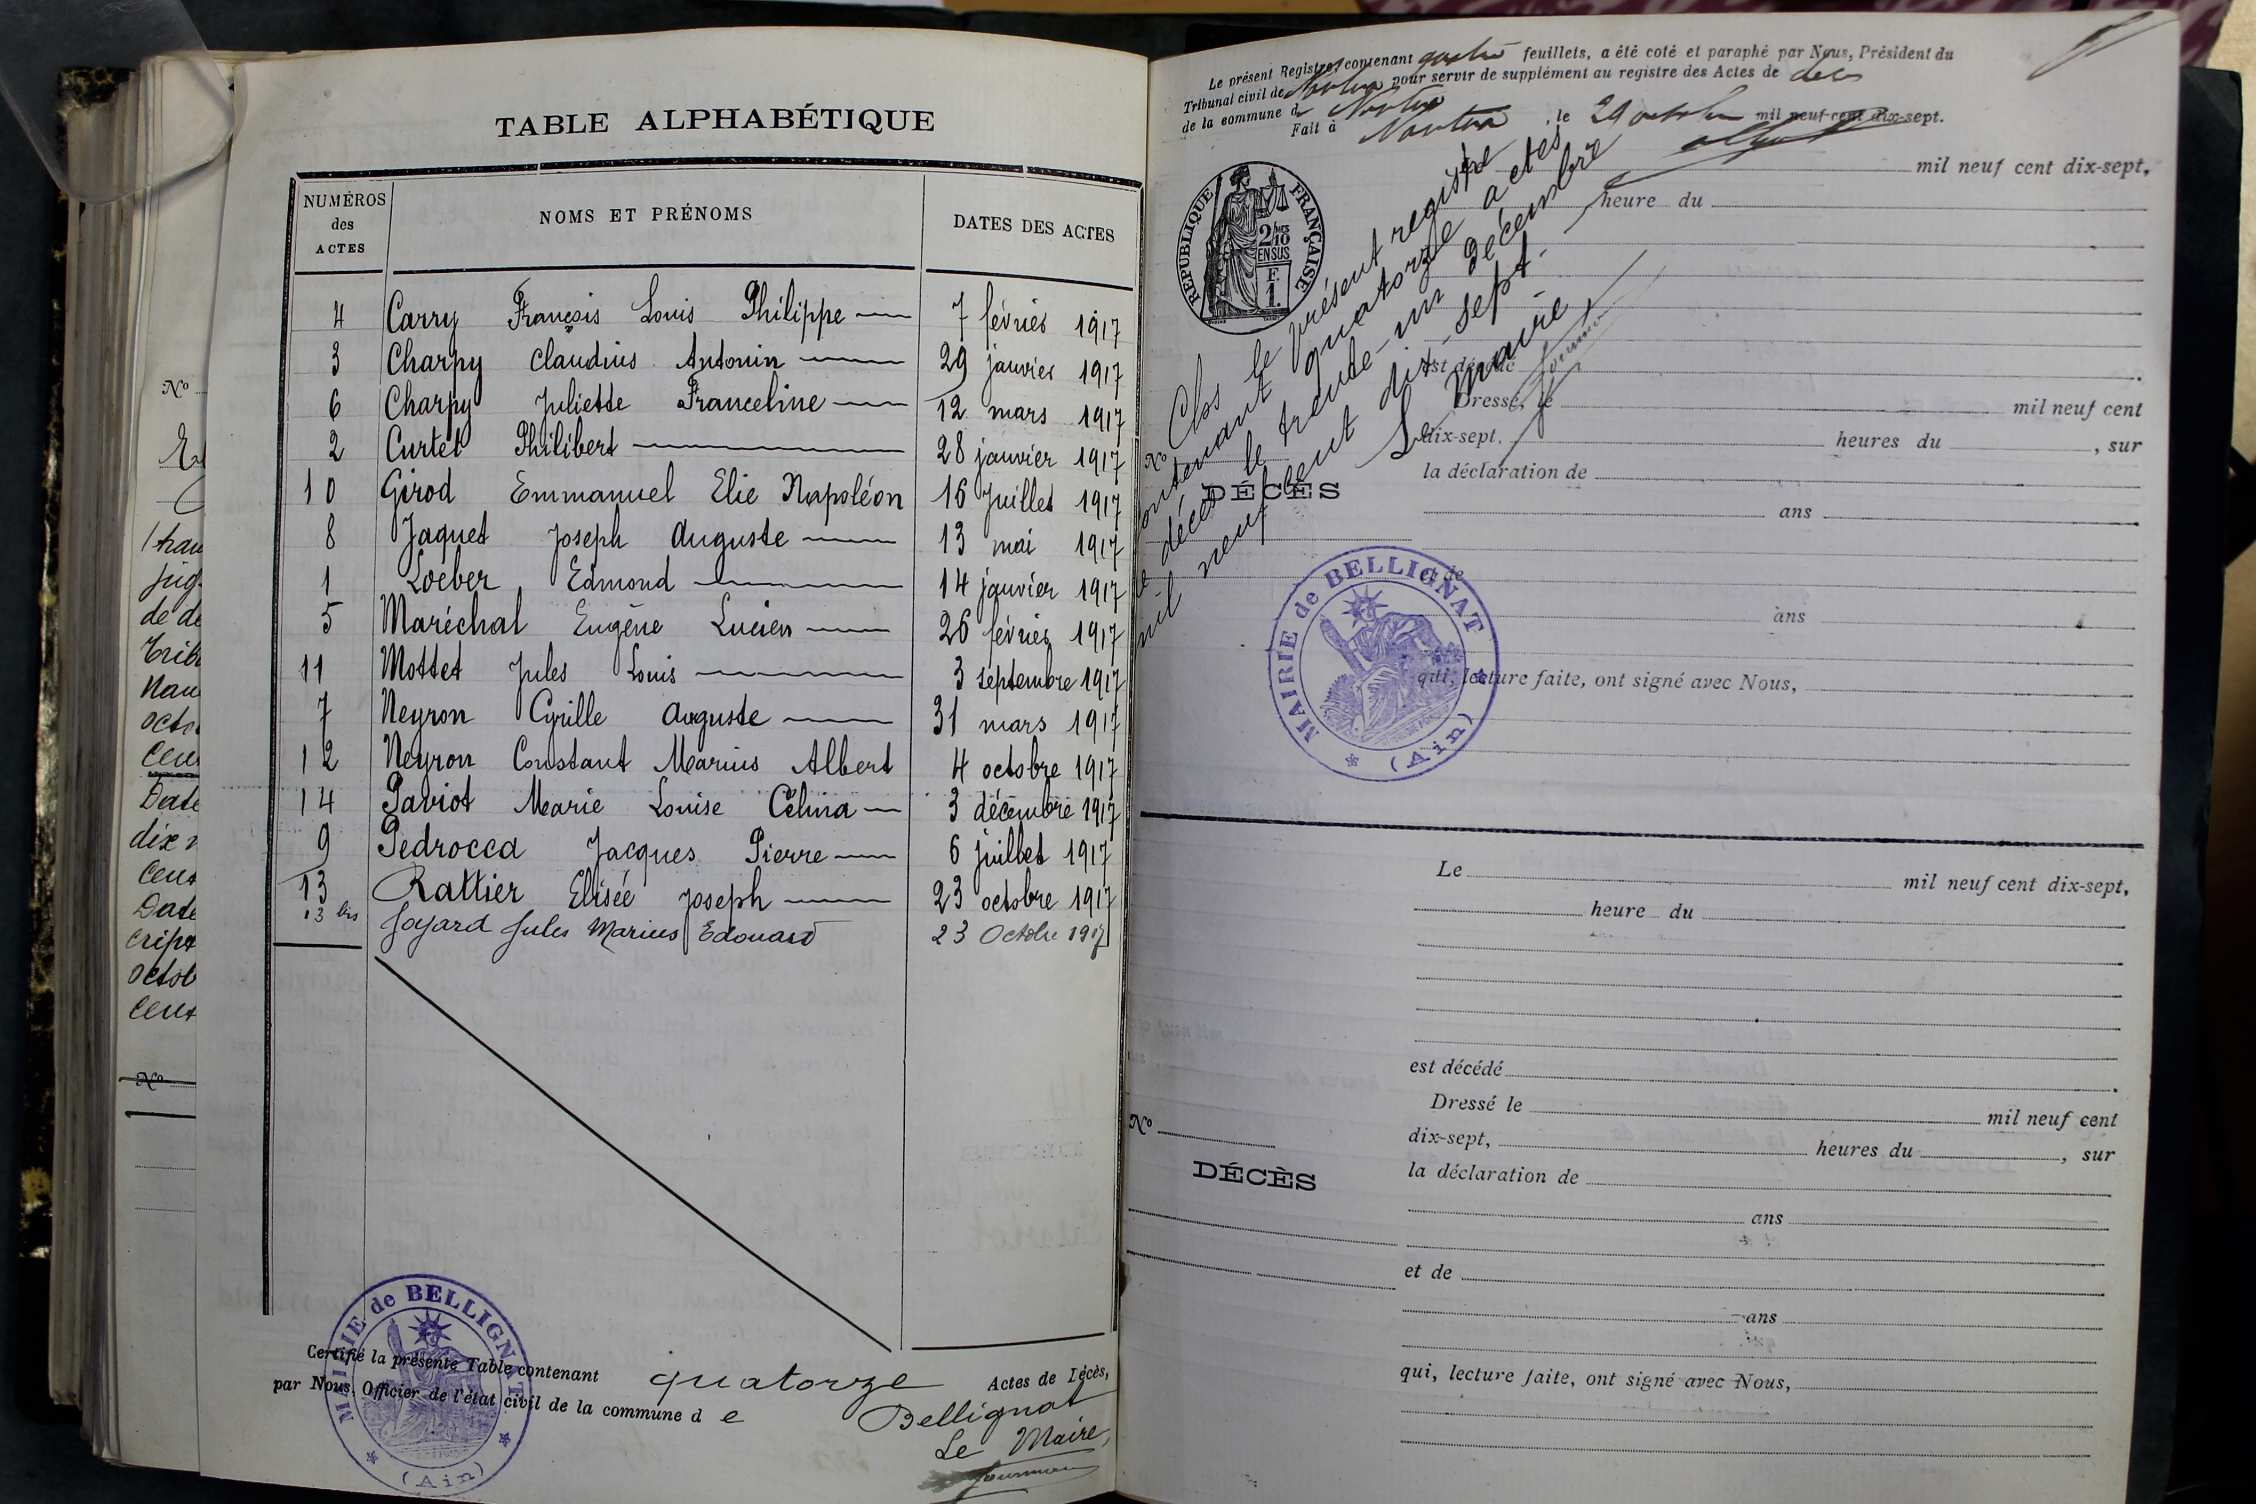 TABLE ALPHABÉTIQUE
NUMÉROS des ACTES
NOMS ET PRÉNOMS
DATES DES ACTES
4 Carry François Louis Philippe 7 février 1917
3 Charpy Claudius Antonin 29 janvier 1917
6 Charpy Juliette Franceline 12 mars 1917
2 Curtet Philibert 28 janvier 1917
10 Girod Emmanuel Elie Napoléon 16 Juillet 1917
8 Jaquet Joseph Auguste 13 mai 1917
1 Loeber Edmond 14 janvier 1917
5 Maréchal Eugène Lucien 26 février 1917
11 Mottet Jules Louis 3 septembre 1917
7 Neyron Cyrille Auguste 31 mars 1917
12 Neyron Constant Marius Albert 4 octobre 1917
14 Paviot Marie Louise Célina 3 décembre 1917
9 Pedrocca Jacques Pierre 6 juillet 1917
13 Rattier Elisée Joseph 23 octobre 1917
13 bis Joyard Jules Marius Edouard 23 Octobre 1917
Certifié la présente Table contenant quatorze Actes de Décès,
par Nous, Officier de l'état civil de la commune d e Bellignat
Le Maire,
MAIRIE de BELLIGNAT
(Ain)
No
trau
jug
de de
Trib
Nan
octo
cen
Date
dix
cent
Date
cript
octob
cent
No
Le présent Registre, contenant quatre feuillets, a été coté et paraphé par Nous, Président du
Tribunal civil de Nantua pour servir de supplément au registre des Actes de décès
de la commune d Nantua
Fait à Nantua, le 29 octobre mil neuf cent dix-sept.
RÉPUBLIQUE FRANÇAISE
2/10
EN SUS
F.
1.
mil neuf cent dix-sept,
heure du
Clos le présent registre
contenant quatorze actes
de décès le trente-un décembre
mil neuf cent dix-sept.
Le Maire,
est décédé
Dressé, le mil neuf cent
dix-sept. heures du , sur
la déclaration de
No
DÉCÈS
ans
et de
ans
qui, lecture faite, ont signé avec Nous,
MAIRIE de BELLIGNAT
(Ain)
Le mil neuf cent dix-sept,
heure du
est décédé
Dressé le mil neuf cent
dix-sept, heures du , sur
la déclaration de
No
DÉCÈS
ans
et de
ans
qui, lecture faite, ont signé avec Nous,